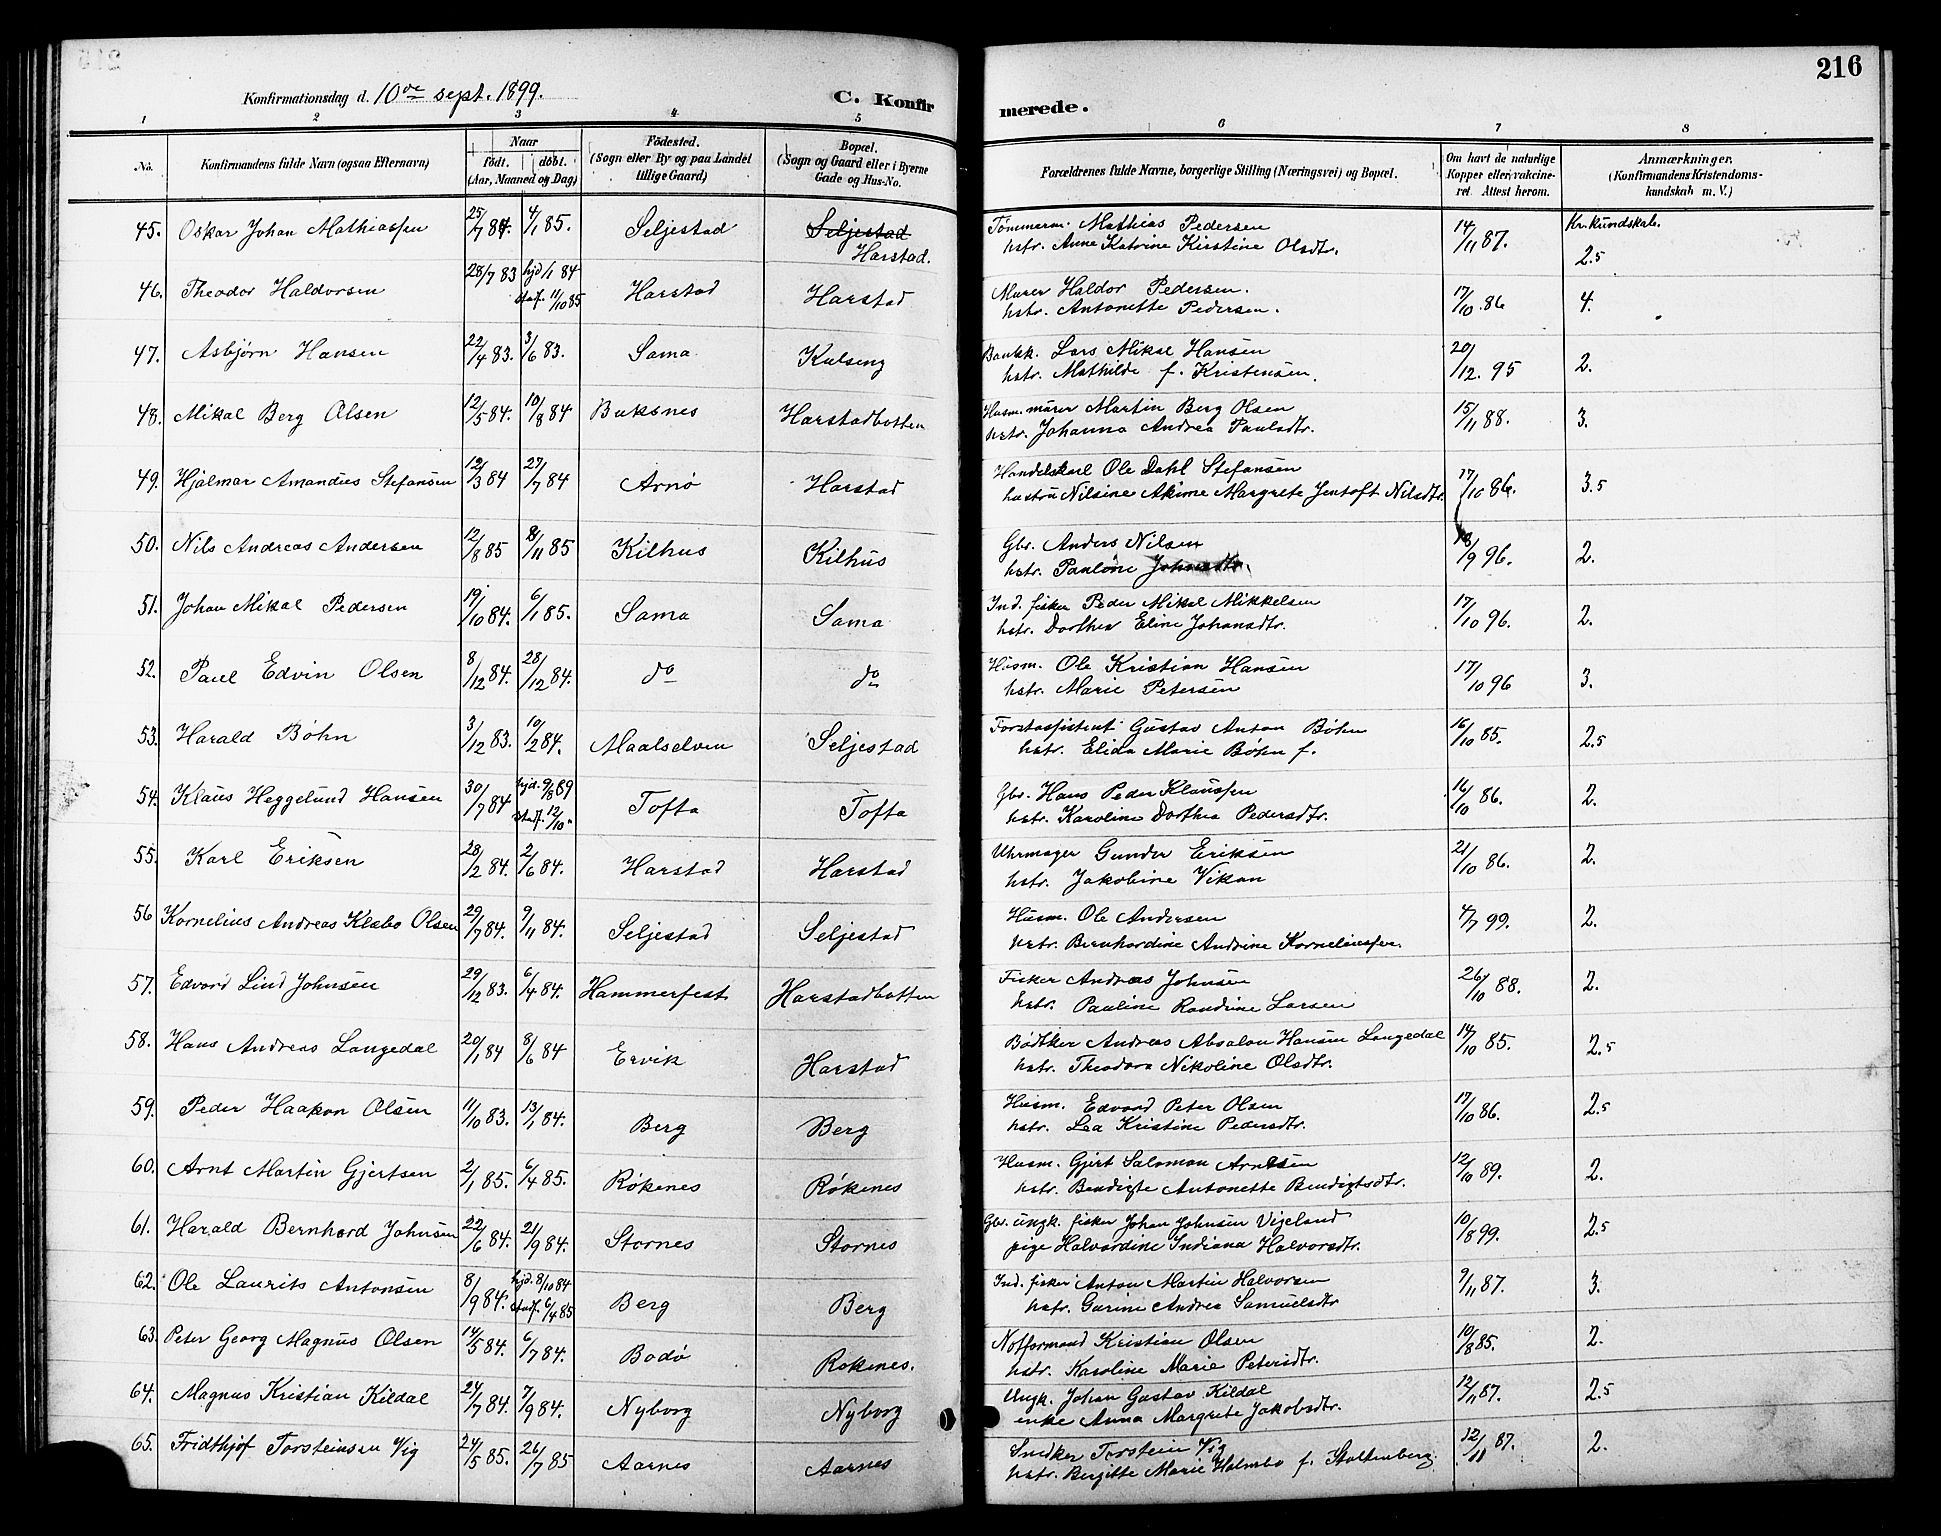 216
Konfirmationsdag d. 10de sept. 1899.
C. Konfirmerede.
1 2 3 4 5 6 7 8
No. Konfirmandens fulde Navn (ogsaa Efternavn) Naar født. døbt. (Aar, Maaned og Dag) Fødested. (Sogn eller By og paa Landet tillige Gaard) Bopæl. (Sogn og Gaard eller i Byerne Gade og Hus-No. Forældrenes fulde Navne, borgerlige Stilling (Næringsvei) og Bopæl. Om havt de naturlige Kopper eller vakcineret. Attest herom. Anmærkninger. (Konfirmandens Kristendomskundskab m. V.)
45. Oskar Johan Mathiassen 25/7 84. 4/1 85. Seljestad Seljestad Harstad. Tømmerm. Mathias Pedersen 14/11 87. Kr.kundskab. 2.5
hstr. Anne Katrine Kirstine Olsdtr.
46. Theodor Haldorsen 28/7 83 hjd 1/1 84 stadf. 11/10 85 Harstad Harstad Murer Haldor Pedersen. 17/10. 86 4.
hstr. Antonette Pedersen.
47. Asbjørn Hansen 22/4 83. 3/6 83. Sama Kulseng Bankk. Lars Mikal Hansen 20/12. 95 2.
hstr. Mathilde f. Kristensen.
48. Mikal Berg Olsen 12/5 84. 10/8 84 Buksnes Harstadbotten Husm. murer Martin Berg Olsen 15/11 88. 3.
hstr. Johanna Andrea Paulsdtr.
49. Hjalmar Amandus Stefansen 12/3 84 27/7 84 Arnø Harstad Handelskarl Ole Dahl Stefansen 17/10 86. 3.5
hustru Nilsine Akime Margrete Jentoft Nilsdtr.
50. Nils Andreas Andersen 12/8 85 8/11 85 Kilhus Kilhus Gbr. Anders Nilsen 18/9 96. 2.
hstr. Pauline
51. Johan Mikal Pedersen 19/10 84. 6/1 85. Sama Sama Ind. fisker Peder Mikal Mikkelsen 17/10 96. 2.
hstr. Dorthea Eline Johansdtr.
52. Paul Edvin Olsen 8/12 84. 28/12 84. do do Husm. Ole Kristian Hansen 17/10 96 3.
hstr. Marie Petersen
53. Harald Bøhn 3/12 83. 10/2 84. Maalselven Seljestad Forstassistent Gustav Anton Bøhn 16/10 85. 2.5
hstr. Elida Marie Bøhn f.
54. Klaus Heggelund Hansen 30/7 84 hjd. 9/8 89 stadf. 12/10 " Tofta Tofta Gbr. Hans Peder Klaussen 16/10 86. 2.
hstr. Karoline Dorthea Pedersdtr.
55. Karl Eriksen 28/2 84. 2/6 84. Harstad Harstad Uhrmager Gunder Eriksen 21/10 86. 2.
hstr. Jakobine Vikan
56 Kornelius Andreas Klæbo Olsen 29/7 84. 9/11 84. Seljestad Seljestad Husm. Ole Andersen 4/7 99. 2.
hstr. Bernhardine Andrine Korneliussen.
57. Edvard Lind Johnsen 29/12 83. 6/4 84. Hammerfest Harstadbotten Fisker Andreas Johnsen 26/10 88. 2.
hstr. Pauline Randine Larsen
58. Hans Andreas Langedal 20/1 84 8/6 84 Ervik Harstad Bødtker Andreas Absalon Hansen Langedal 14/10 85. 2.5
hstr. Theodora Nikoline Olsdtr.
59. Peder Haakon Olsen 11/10 83. 13/1 84. Berg Berg Husm. Edvard Peter Olsen 17/10 86. 2.5
hstr. Lea Kristine Pedersdtr.
60. Arnt Martin Gjertsen 2/1 85. 6/4 85. Røkenes Røkenes Husm. Gjert Salomon Arntsen 12/10 89. 2.
hstr. Bendigte Antonette Bendigtsdtr.
61. Harald Bernhard Johnsen 22/6 84. 21/9 84. Stornes Stornes Gbr. ungk. fisker Johan Johnsen Vigeland 10/8 99. 2.5
pige Halvardine Indiana Halvorsdtr.
62. Ole Laurits Antonsen 8/9 84. hjd. 8/10 84 stadf. 6/4 85 Berg Berg Ind. fisker Anton Martin Halvorsen 9/11 87. 3.
hstr. Gurine Andrea Samuelsdtr
63. Peter Georg Magnus Olsen 14/5 84. 6/7 84. Bodø Røkenes. Notformand Kristian Olsen 10/8 85. 2.
hstr. Karoline Marie Petersdtr.
64. Magnus Kristian Kildal 24/7 84. 7/9 84. Nyborg Nyborg Ungk. Johan Gustav Kildal 12/11 87. 2.5
enke Anna Margrete Jakobsdtr.
65. Fridthjof Torsteinsen Vig 24/5 85. 26/7 85 Aarnes Aarnes Snedker Torstein Vig 12/11 87. 2.
hstr. Bergitte Marie Holmbo f. Stoltenberg.